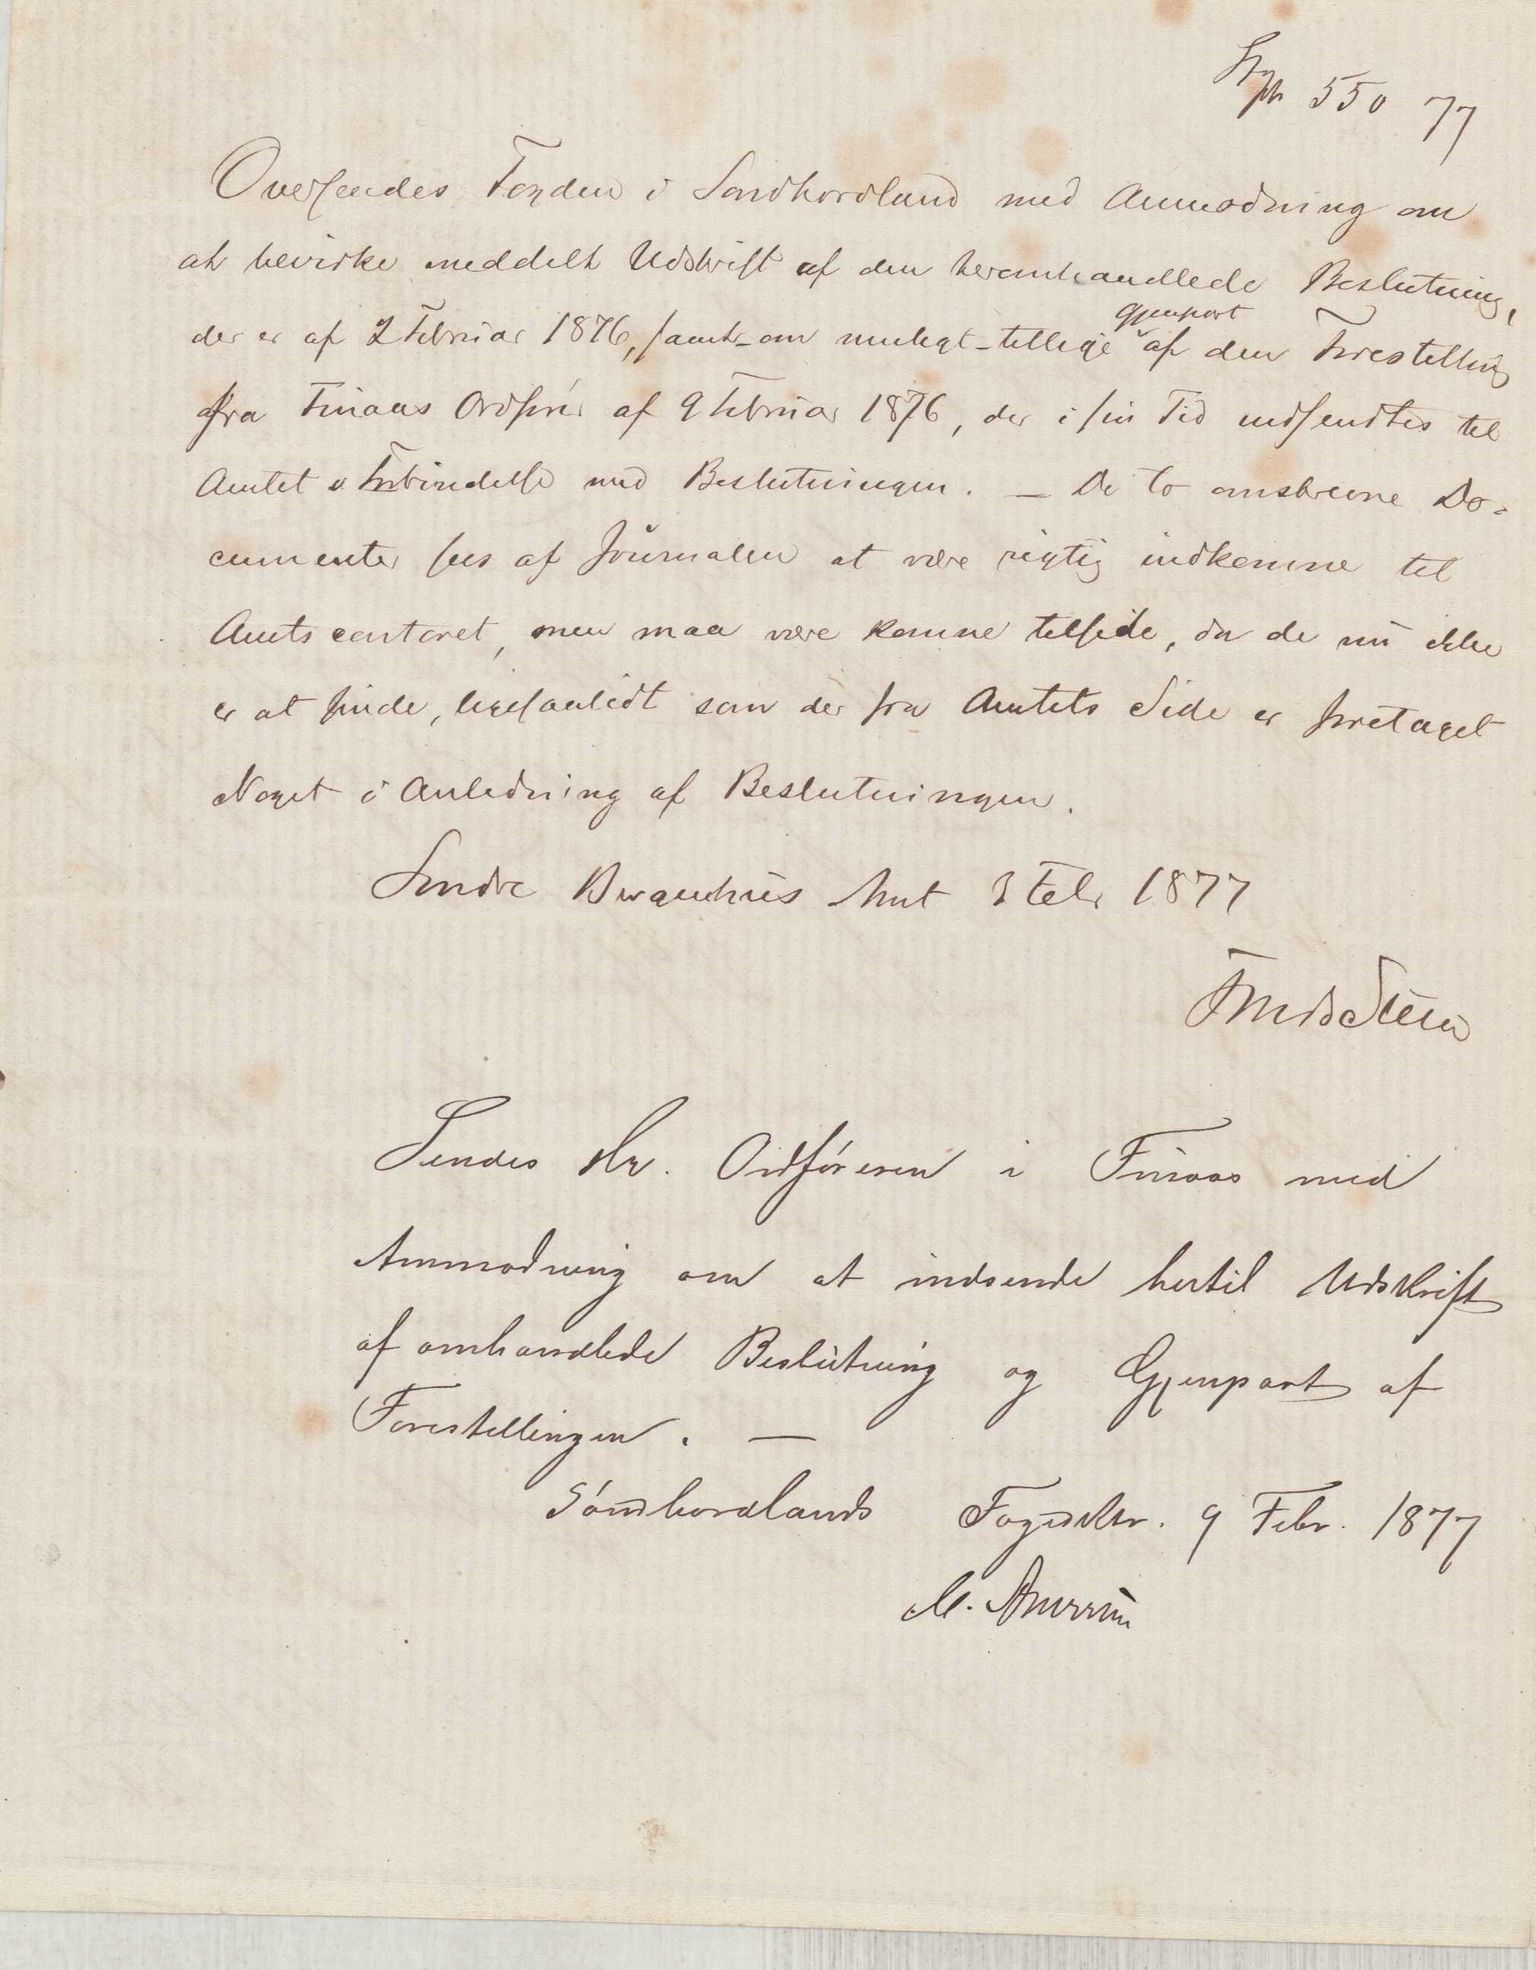 550 77
Oversendes Fogden i Søndhordland med Anmodning om
at bevirke meddelt Udskrift af den heromhandlede Beslutning,
der er af 2 Februar 1876, samt om muligt tillige Gjenpart af den Forestilling
fra Finaas Ordfører af 9 Februar 1876, der i sin Tid indsendtes til
Amtet i Forbindelse med Beslutningen. – De to omskrevne Do-
cumenter sees af Journalen at være rigtig indkomne til
Amtscontoret, men maa være komne tilside, da de nu ikke
er at finde, ligesaalidt som der fra Amtets Side er foretaget
Noget i Anledning af Beslutningen.
Søndre Bergenhus Amt 3 Febr 1877
Sendes Hr. Ordføreren i Finaas med
Anmodning om at indsende hertil Udskrift
af omhandlede Beslutning og Gjenpart af
Forestillingen. –
Søndhordlands Fogedktr. 9 Febr. 1877